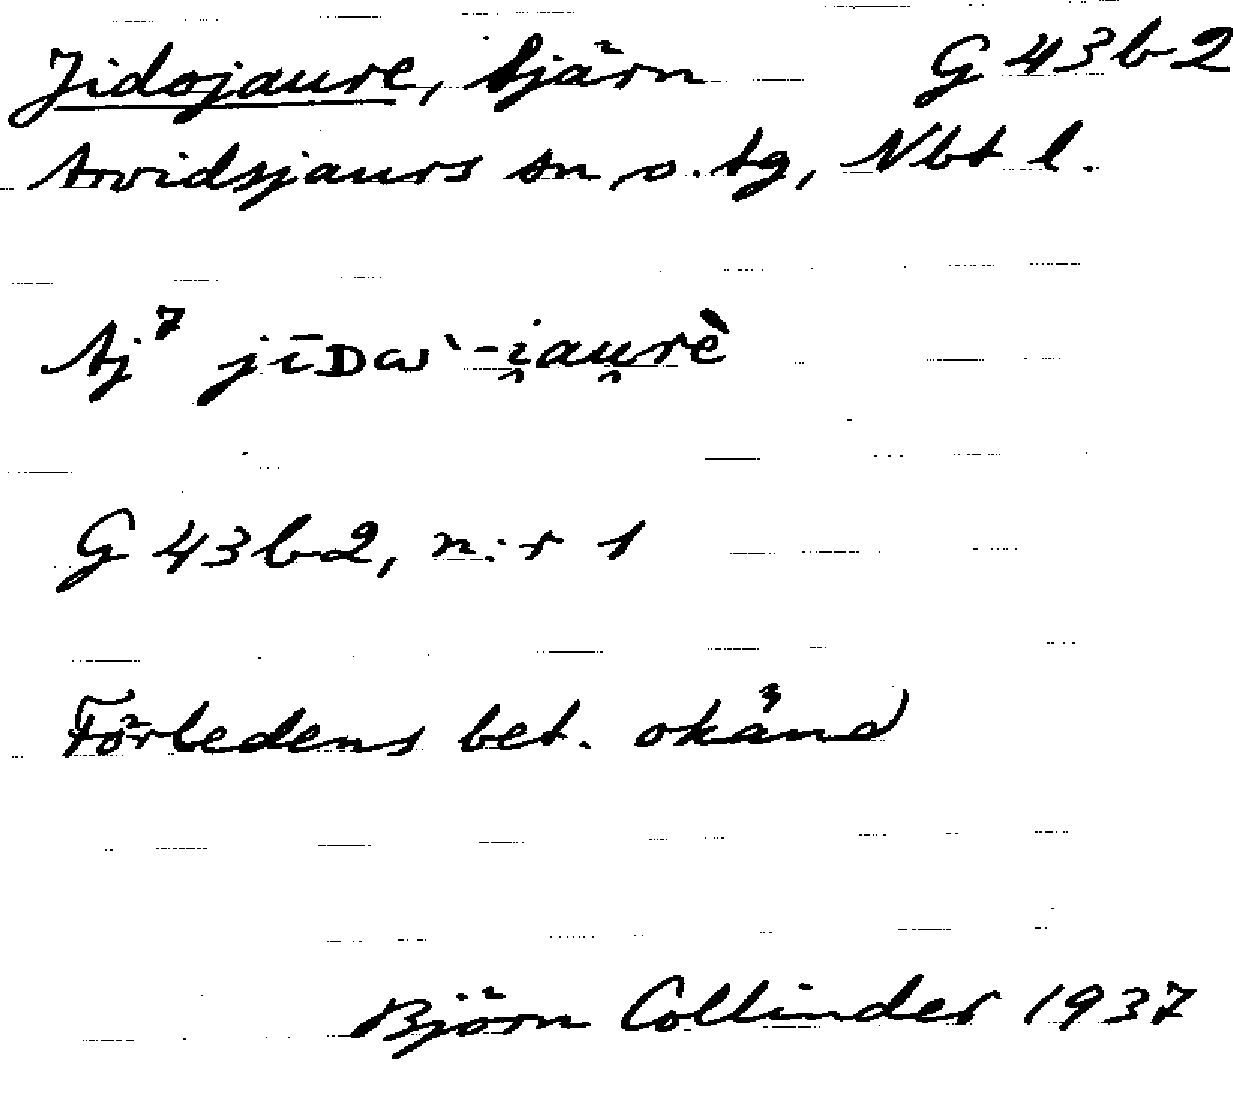 Jidojaure, tjärn G 43 b 2
Arvidsjaurs sn o. tg, Nbt l.
Aj⁷ jīDὼ-i̯au̯rè
G 43 b 2, n:r 1
Förledens bet. okänd
Björn Collinder 1937